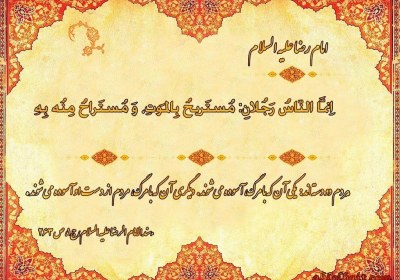 امام رضا علیه السلام
اِنَّمَا النّاسُ رَجُلانِ: مُستَریحٌ بِالمَوتِ، وَ مُستَراحٌ مِنه بِهِ
مردم دو دسته‌اند: یکی آن که با مرگ، آسوده می شوند. دیگری آن که با مرگ، مردم از دست او آسوده می شوند.
مسند الامام الرضا علیه السلام ج ۱، ص ۲۶۳